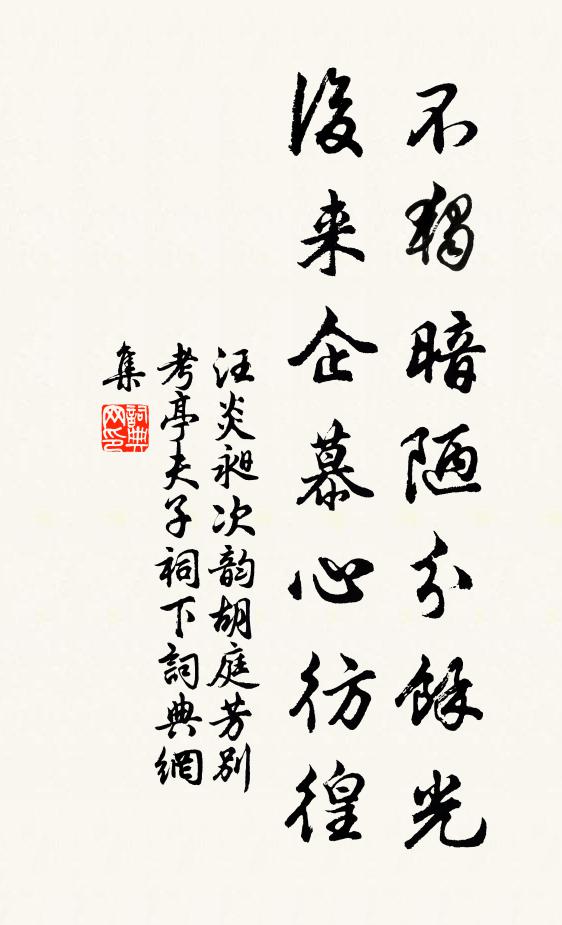 不独暗陋分馀光
後来企慕心彷徨
汪炎昶次韵胡庭芳别
考亭夫子祠下詞典網
集
詞典
网印